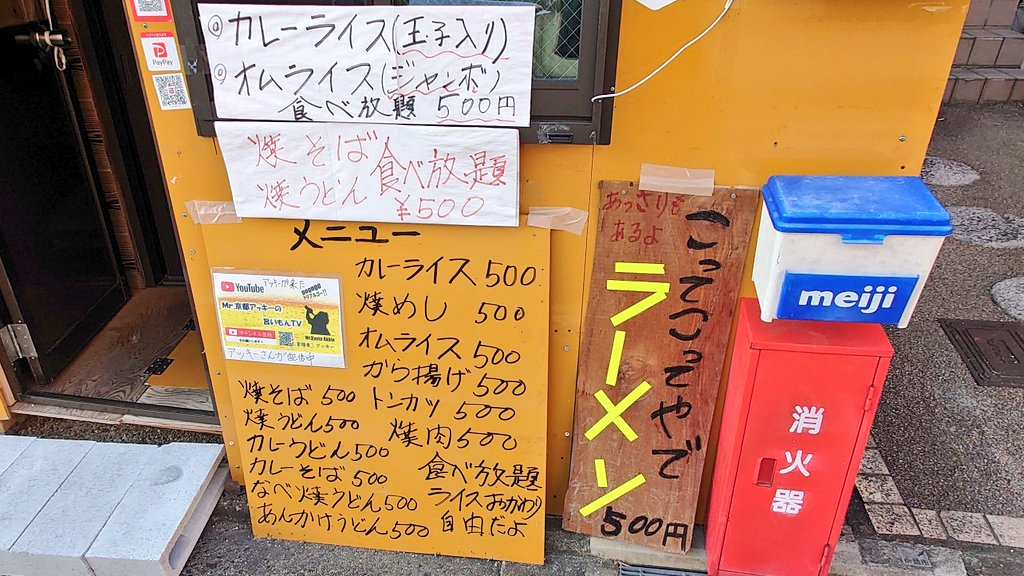 PayPay
◎カレーライス(玉子入り)
◎オムライス(ジャンボ)
食べ放題 500円
焼そば
焼うどん
食べ放題
¥500
メニュー
カレーライス 500
焼めし 500
オムライス 500
から揚げ 500
トンカツ 500
焼肉 500
食べ放題
ライスおかわり
自由だよ
YouTube アッキーが来た
Mr.京都アッキーの
旨いもんTV
チャンネル登録
アッキーさんが配信中
焼そば 500
焼うどん 500
カレーうどん 500
カレーそば 500
なべ焼うどん 500
あんかけうどん 500
あっさりも
あるよ
こってこってやで
ラーメン
500円
meiji
消火器